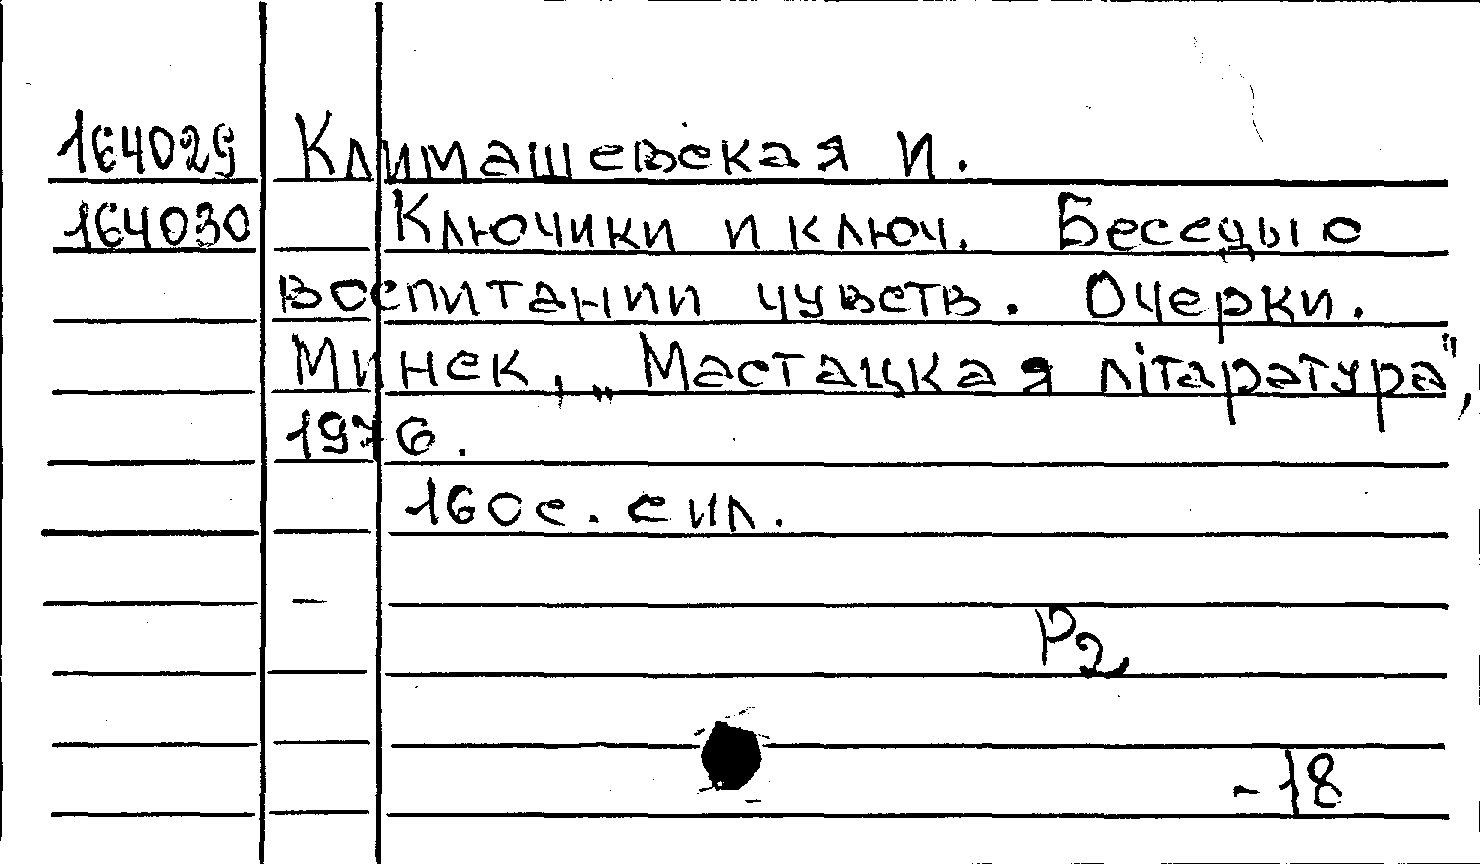 164029 Климашевская И.
164030 Ключики и ключ. Беседы о
воспитании чувств. Очерки.
Минск, „Мастацкая лiтаратура",
1976.
160с. с ил.
Р2
-18